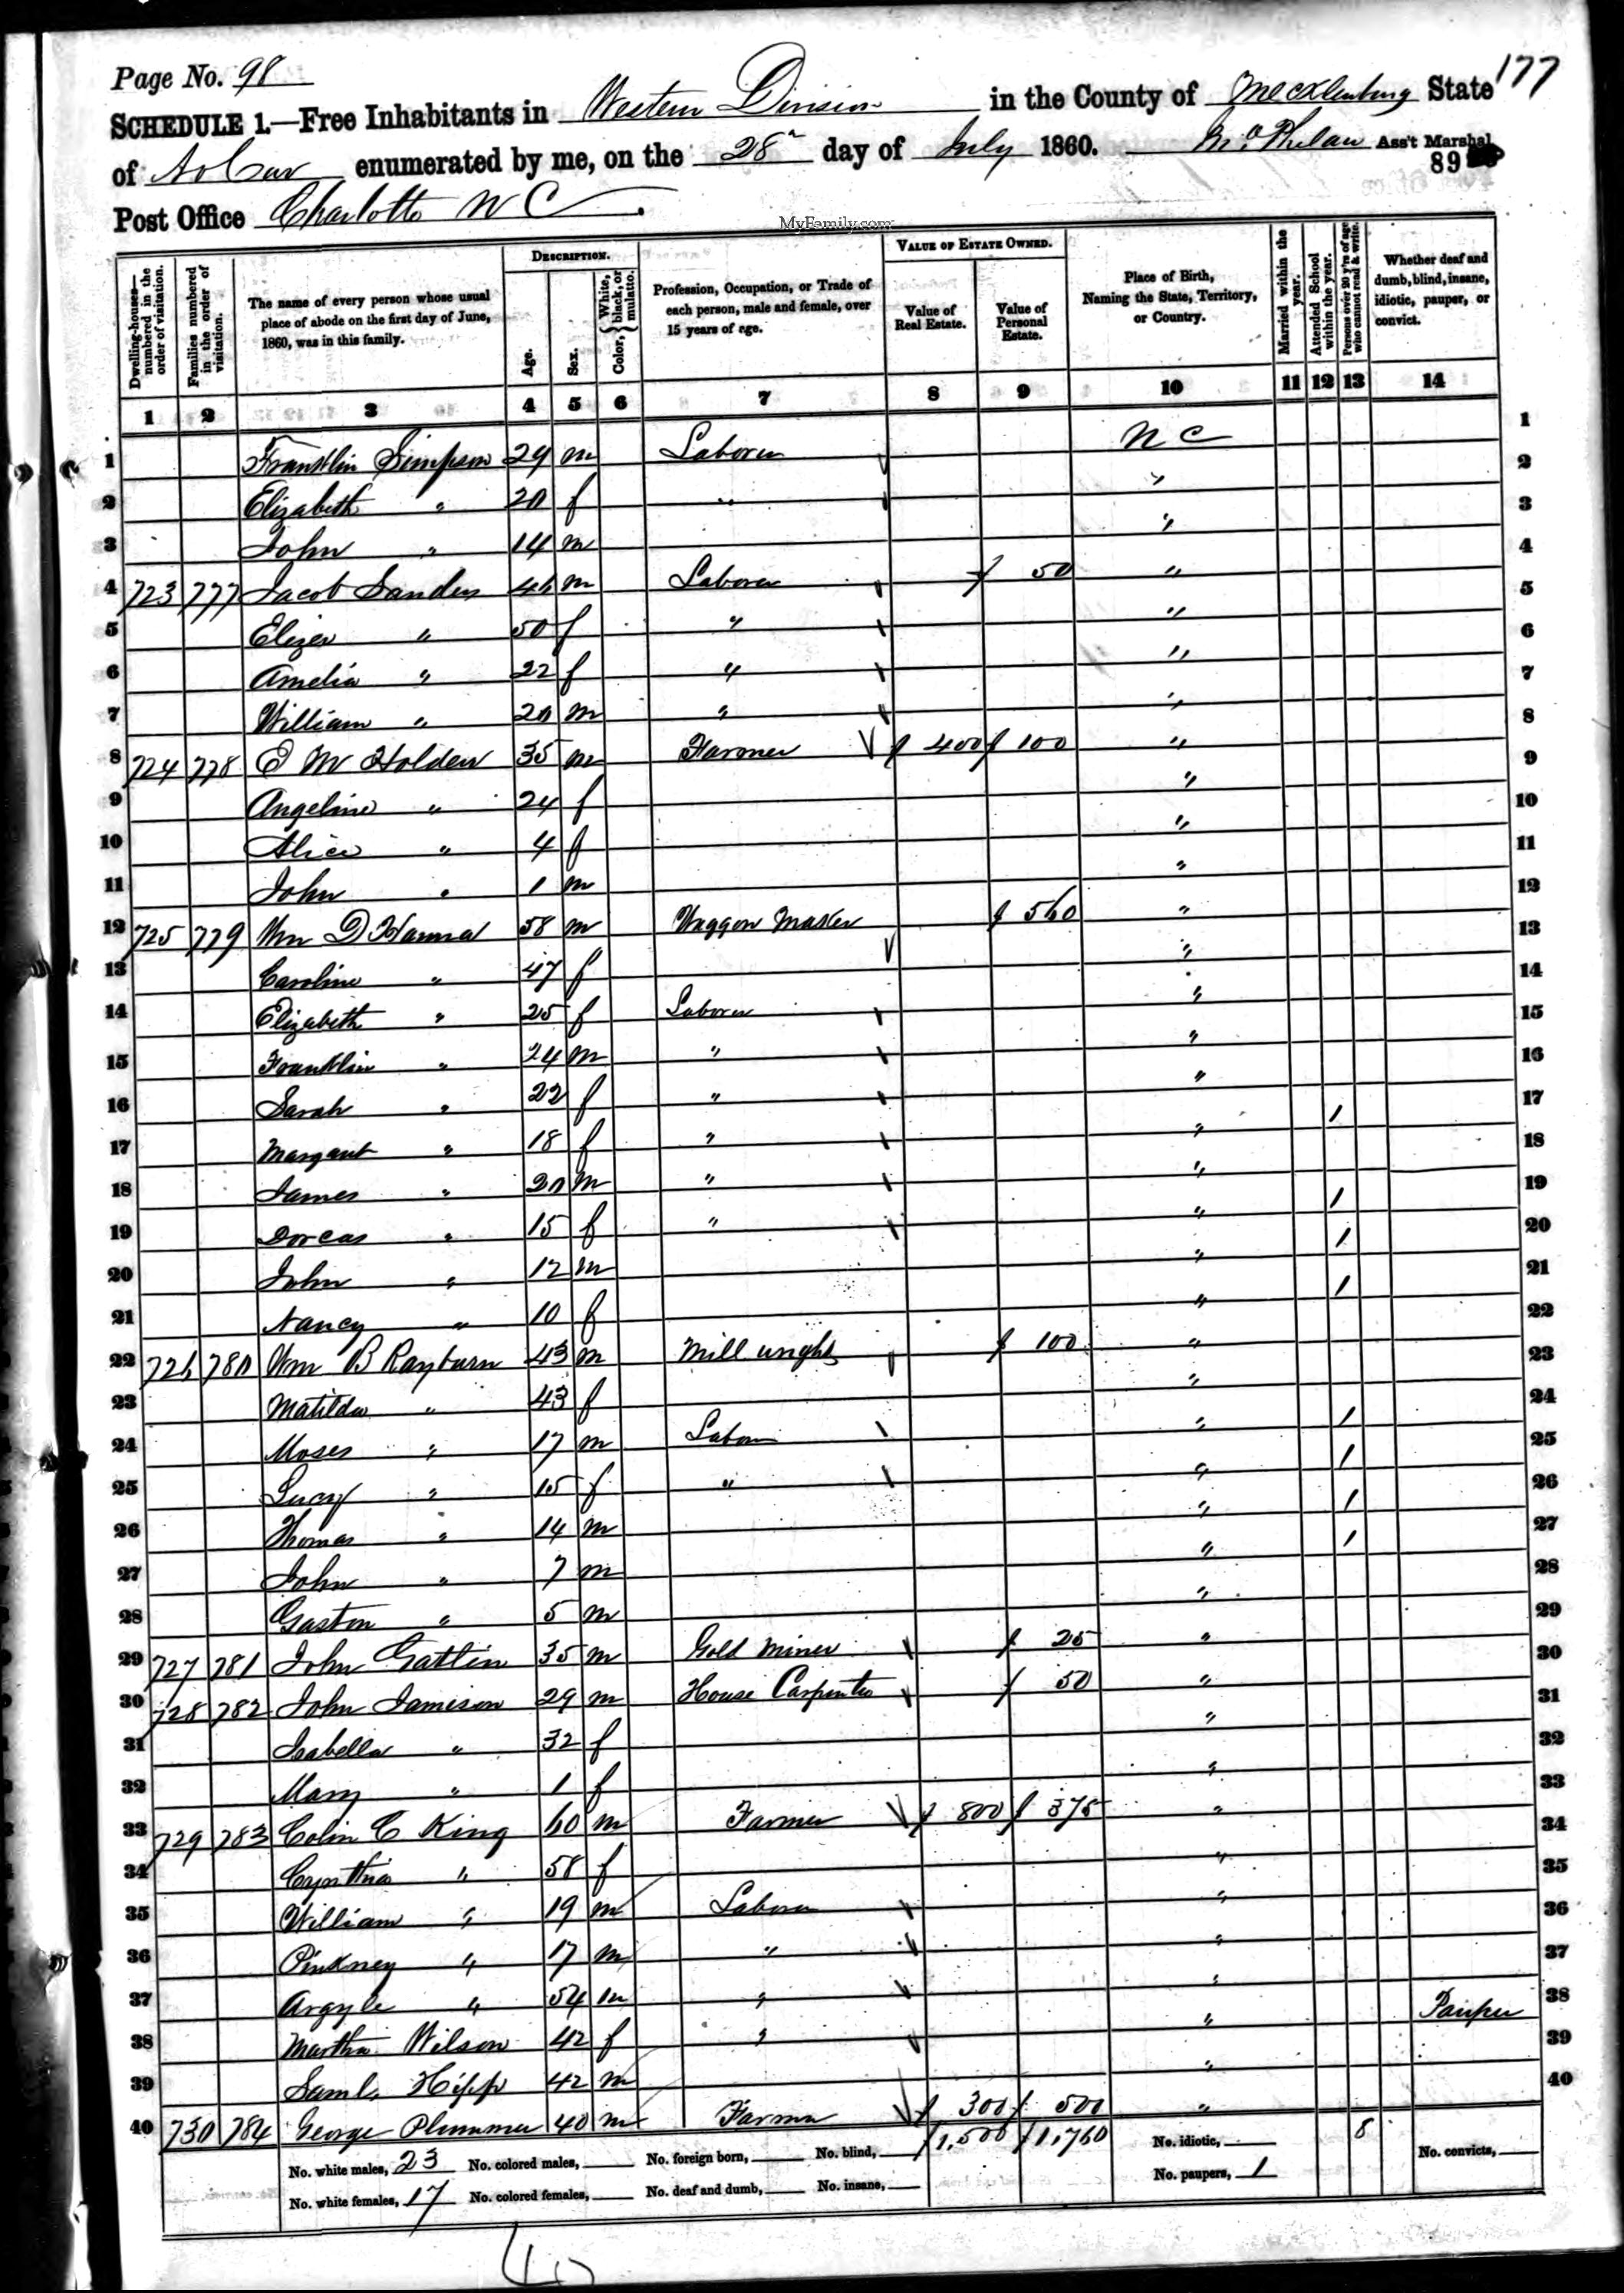 Page No. 98
177
SCHEDULE 1.—Free Inhabitants in Western Division in the County of Mecklenburg State
of No Car enumerated by me, on the 28" day of July 1860. Ass't Marshal
89
Post Office Charlotte N C
MyFamily.com
Dwelling-houses—numbered in the order of visitation. Families numbered in the order of visitation. The name of every person whose usual place of abode on the first day of June, 1860, was in this family. DESCRIPTION. Age. Sex. Color, { White, black, or mulatto. Profession, Occupation, or Trade of each person, male and female, over 15 years of age. VALUE OF ESTATE OWNED. Value of Real Estate. Value of Personal Estate. Place of Birth, Naming the State, Territory, or Country. Married within the year. Attended School within the year. Persons over 20 y'rs of age who cannot read & write. Whether deaf and dumb, blind, insane, idiotic, pauper, or convict.
1 2 3 4 5 6 7 8 9 10 11 12 13 14
1 Franklin Simpson 29 m Laborer N C 1
2 Elizabeth " 20 f " " 2
3 John " 14 m " 3
4 723 777 Jacob Sanders 46 m Laborer $ 50 " 4
5 Elizer " 50 f " " 5
6 Amelia " 22 f " " 6
7 William " 20 m " " 7
8 724 778 E M Holden 35 m Farmer $ 400 $ 100 " 8
9 Angeline " 24 f " 9
10 Alice " 4 f " 10
11 John " 1 m " 11
12 725 779 Wm D Hanna 58 m Waggon Maker $ 560 " 12
13 Caroline " 47 f " 13
14 Elizabeth " 25 f Laborer " 14
15 Franklin " 24 m " " 15
16 Sarah " 22 f " " 16
17 Margaret " 18 f " " / 17
18 James " 20 m " " 18
19 Dorcas " 15 f " " / 19
20 John " 12 m " / 20
21 Nancy " 10 f " / 21
22 726 780 Wm B Rayburn 43 m Mill wright $ 100 " 22
23 Matilda " 43 f " 23
24 Moses " 17 m Labor " / 24
25 Lucy " 15 f " " / 25
26 Thomas " 14 m " / 26
27 John " 7 m " / 27
28 Gaston " 5 m " 28
29 727 781 John Gatlin 35 m Gold Miner $ 25 " 29
30 728 782 John Jamison 29 m House Carpenter $ 50 " 30
31 Isabella " 32 f " 31
32 Mary " 1 f " 32
33 729 783 Colin C King 60 m Farmer $ 800 $ 375 " 33
34 Cynthia " 58 f " 34
35 William " 19 m Laborer " 35
36 Pinkney " 17 m " " 36
37 Argyle " 54 m " " 37
38 Martha Wilson 42 f " " Pauper 38
39 Saml. Hipp 42 m " 39
40 730 784 George Plummer 40 m Farmer $ 300 $ 500 " 40
No. white males, 23 No. colored males, No. foreign born, No. blind, $1,500 $1,760 No. idiotic, 8 No. convicts,
No. white females, 17 No. colored females, No. deaf and dumb, No. insane, No. paupers, 1
40